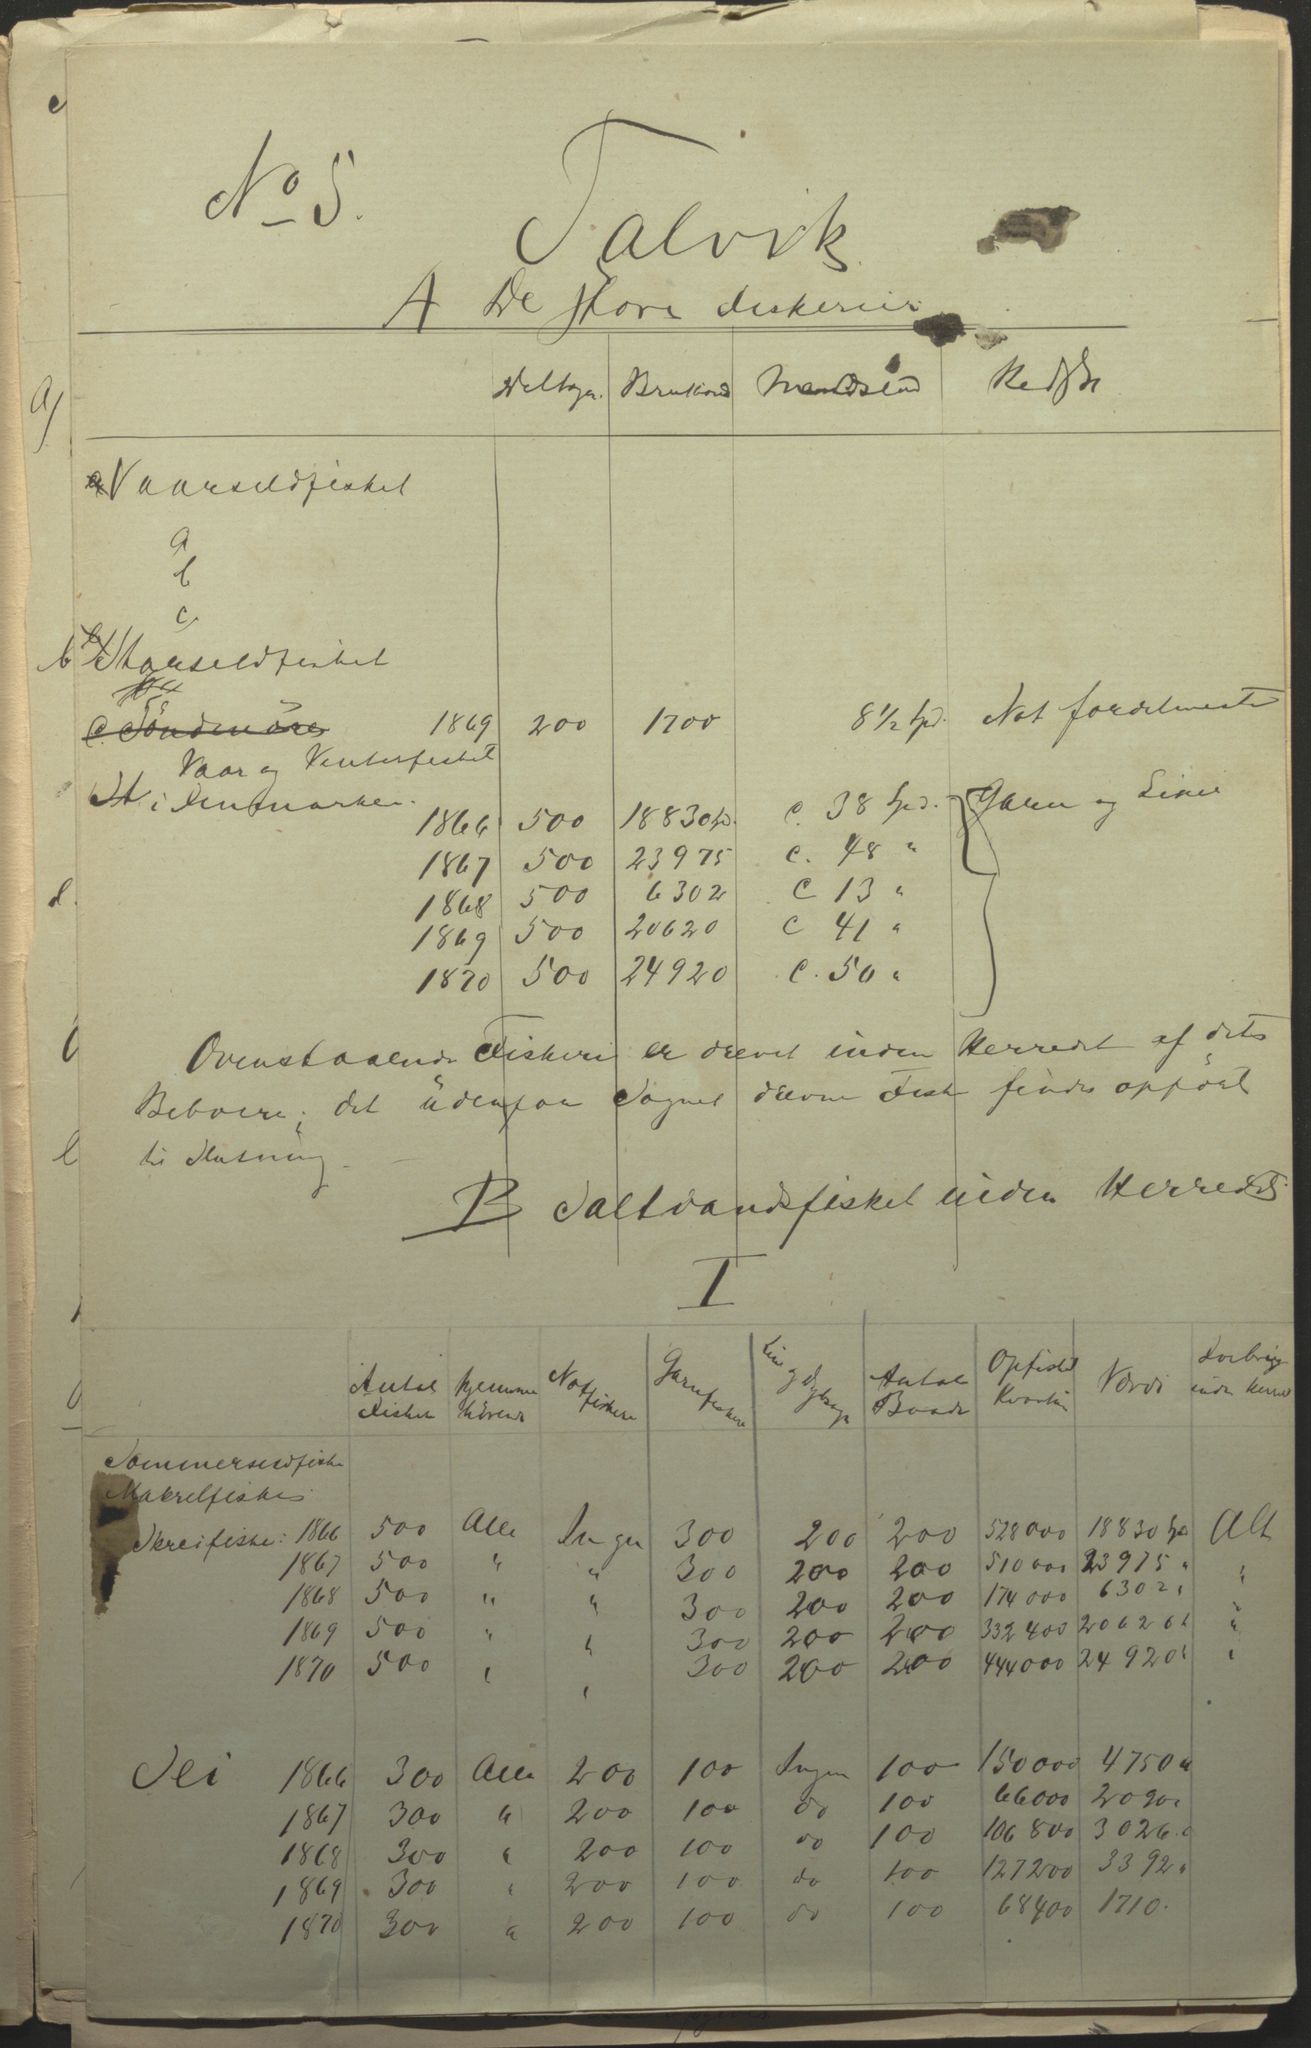 No 5.
Talvik
A De store Fiskerier
Deltagn. Bruttoud Mandslod Redskr
Vaarsildfisket
a
b
c
Storsildfisket
c. Söndmöres 1869 200 1700 8 1/2 spd. Not fordetmeste
Vaar og Vinterfisket
i Finmarken.
1866 500 18830 spd. c. 38 spd. Garn og Liner
1867 500 23975 c. 48 "
1868 500 6302 c 13 "
1869 500 20620 c 41 "
1870 500 24920 c. 50 "
Ovenstaaende Fiskeri er drevet inden Herredet af dets
Beboere; det udenfor Sognet drevne Fisk findes opfört
til Slutning.
B Saltvandsfisket inden Herredet
I
Antal Fisker hjemme hörende Notfiskere Garnfiskere Line og Dybsagn Antal Baade Opfisket Kvantum Værdi Forbrug inden Herred
Sommersildfiske
Makrelfiske
Skreifiske: 1866 500 Alle Ingen 300 200 200 528000 18830 spd Alt
1867 500 " " 300 200 200 510000 23975 " "
1868 500 " " 300 200 200 174000 6302 " "
1869 500 " " 300 200 200 332400 20620 " "
1870 500 " " 300 200 200 444000 24920 " "
Sei 1866 300 Alle 200 100 Ingen 100 150000 4750 "
1867 300 " 200 100 do 100 66000 2090 "
1868 300 " 200 100 do 100 106800 3026 "
1869 300 " 200 100 do 100 127200 3392 "
1870 300 " 200 100 do 100 68400 1710.